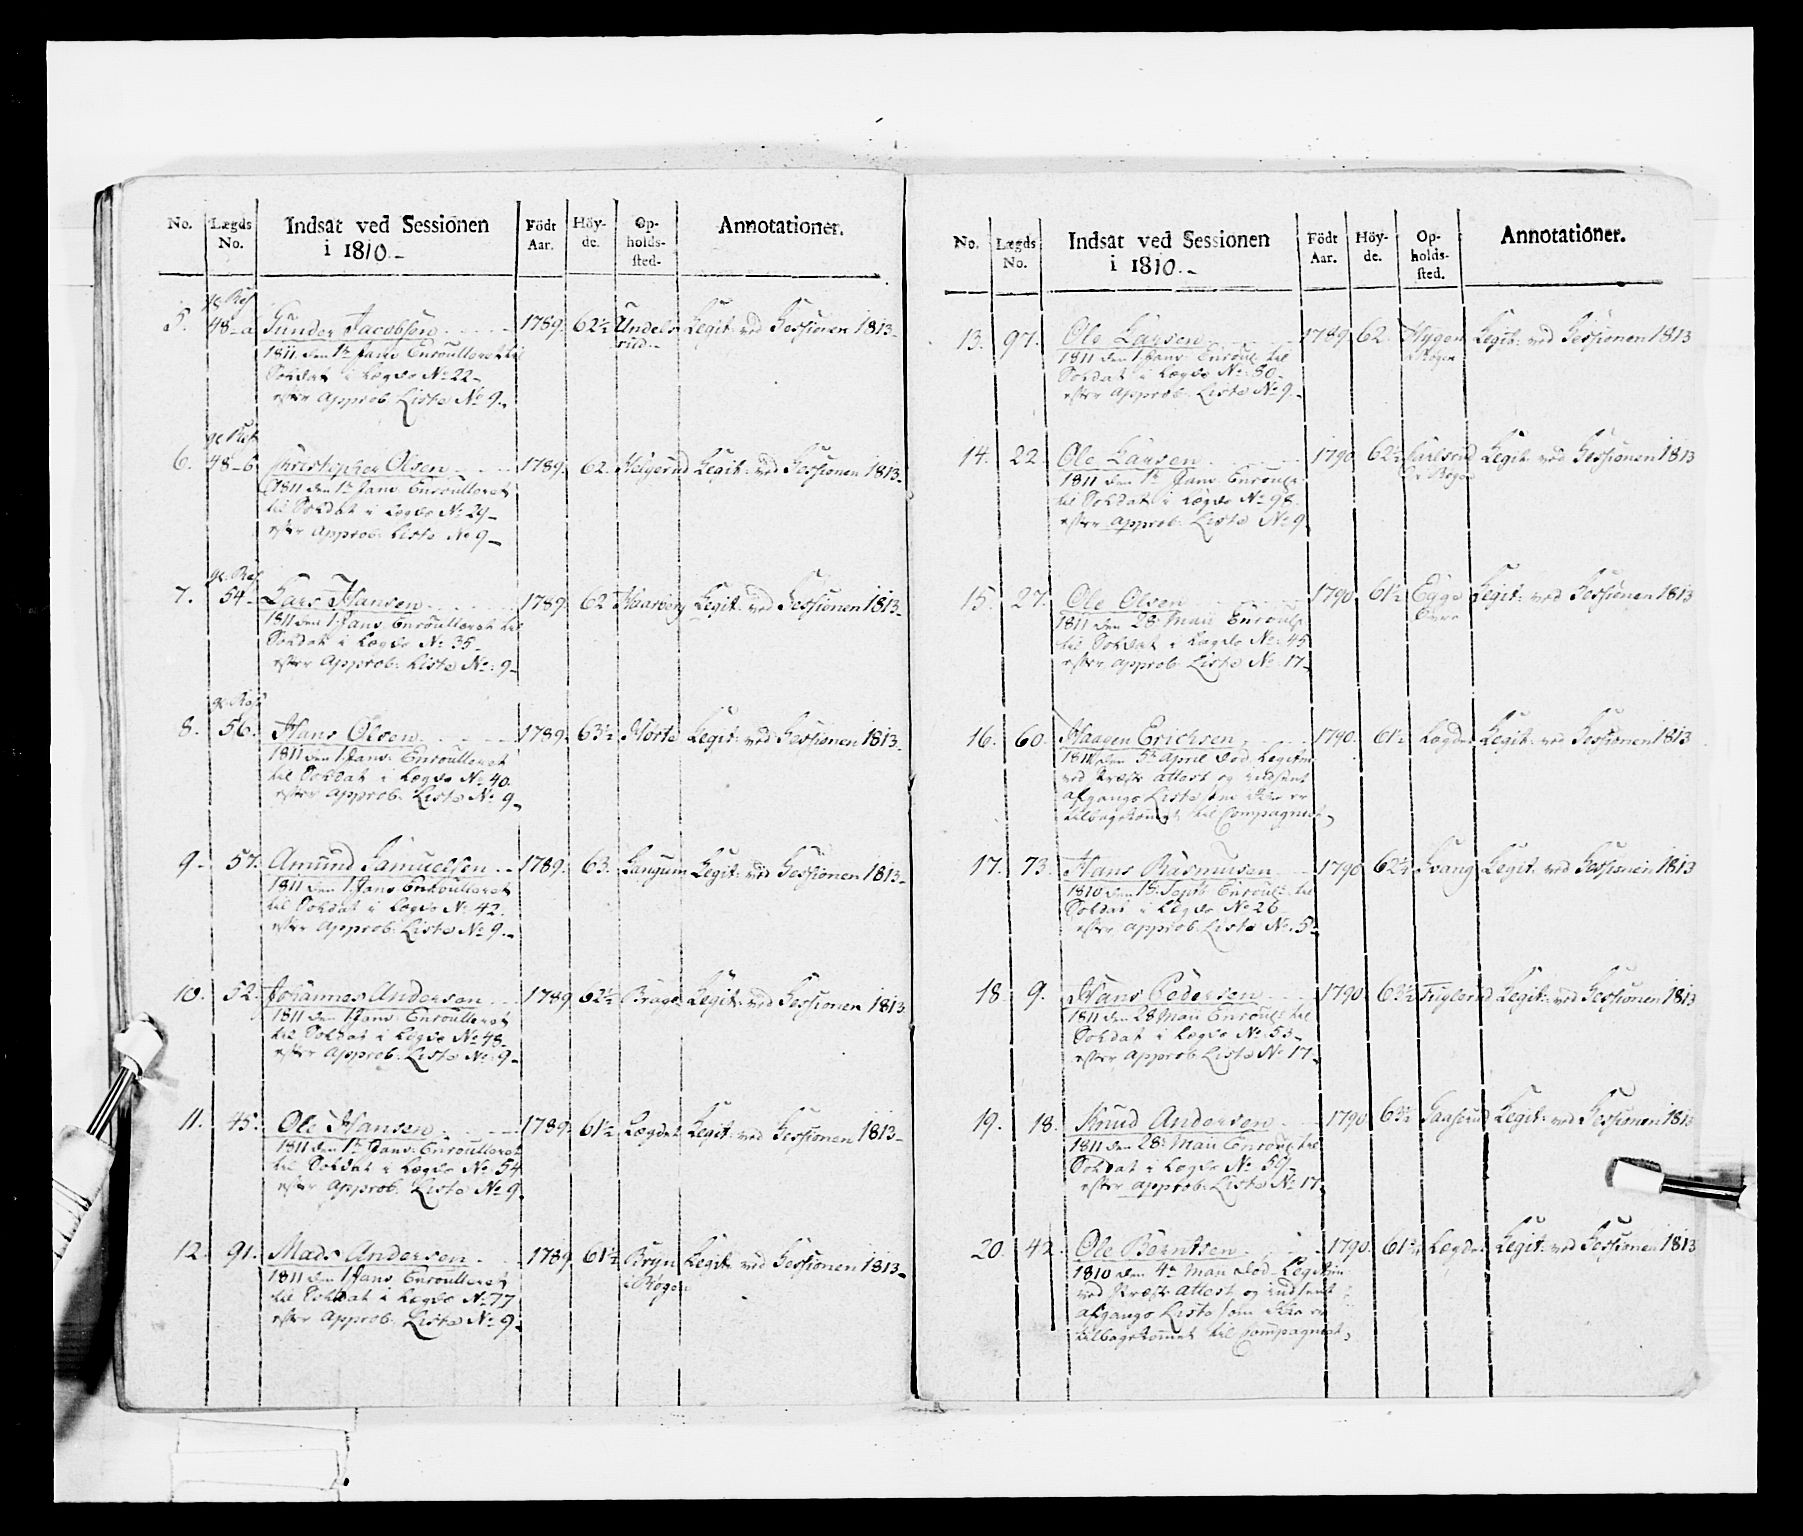 No. Lægds No. Indsat ved Sessionen i 1810.- Födt Aar. Höyde. Opholdssted. Annotationer.
5. 48-a Gunder Jacobsen 1789. 62½ Undelsrud.- Legit: ved Sessionen 1813-
1811 den 1te Janv. Enroulleret til
Soldat i Lægds No 22-
efter Approb. Liste No 9.-
6. 48-b Christopher Olsen 1789. 62. Helgerud Legit: ved Sessionen 1813-
1811 den 1te Janv. Enroulleret
til Soldat i Lægds No 29-
efter Approb: Liste No 9-
7. 54- Lars Hansen 1789. 62 Haarberg Legit: ved Sessionen 1813-
1811 den 1 Janv: Enroulleret til
Soldat i Lægds No 35-
efter Approb: Liste No: 9-
8. 56. Hans Olsen 1789. 63½ Norte Legit: ved Sessionen 1813.
1811 den 1 Janv: Enroulleret
til Soldat i Lægds No 40.
efter Approb: Liste No 9-
9- 57. Amund Samuelsen 1789. 63. Langum Legit: ved Sessionen 1813-
1811 den 1 Janv Enroulleret
til Soldat i Lægds No 42.
efter Approb: Liste No 9.-
10. 52. Johannes Andersen 1789 62½ Brage Legit: ved Sessionen 1813.
1811 den 1 Janv: Enroulleret
til Soldat i Lægds No 48-
efter Approb: Liste No: 9-
11. 45. Ole Hansen 1789. 61½ Lægdet Legit: ved Sessionen 1813-
1811 den 1te Janv: Enroulleret
til Soldat i Lægds No 54
efter Approb: Liste No 9.
12. 91. Mads Andersen 1789 61½ Bryn i Røgen Legit: ved Sessionen 1813-
1811 den 1 Janv. Enroulleret
til Soldat i Lægds No 77
efter Approb: Liste No 9-
No. Lægds No. Indsat ved Sessionen i 1810.- Födt Aar. Höyde. Opholdssted. Annotationer.
13. 97. Ole Larsen 1789 62. Hygen i Røgen Legit: ved Sessionen 1813
1811 den 1 Janv: Enroul: til
Soldat i Lægds No 80-
efter Approb: Liste No 9-
14. 22 Ole Larsen 1790 62½ Carlsrud i Røgen Legit: ved Sessionen 1813
1811 den 1te Janv. Enroul:
til Soldat i Lægds No 98.
efter Approb: Liste No 9
15. 27. Ole Olsen 1790 61½ Egge Øvre Legit: ved Sessionen 1813
1811 den 28: Maii Enroul:
til Soldat i Lægds No: 45
efter Approb: Liste No: 17-
16. 60. Haagen Erichsen 1790. 61½ Lægdet Legit: ved Sessionen 1813
1811 den 5te April død Legitim
ved Præste Attest og indsent
afgangs Liste som ikke er
tilbagekommet til Compagniet,
17. 73. Hans Rasmusen 1790 62½ Svang Legit: ved Sessionen 1813
1810 den 18: Septb: Enroul: til
Soldat i Lægds No 26
efter Approb: Liste No. 5-
18 9. Hans Pedersen 1790 63½ Fuglerud Legit: ved Sessionen 1813
1811 den 28 Maii Enroul: til
Soldat i Lægds No. 53-
efter Approb: Liste No 17-
19. 18. Knud Andersen 1790 63½ Legit: ved Sessionen 1813
1811 den 28: Maii Enroul: til
Soldat i Lægds No 59-
efter Approb: Liste No 17.
20. 42. Ole Berntsen 1790. 61½ Lægdet Legit: ved Sessionen 1813
1810 den 4de Maii død Legitim:
ved Præste Attest og indsent
afgangs Liste som ikke er
tilbagekommet til Compagniet,